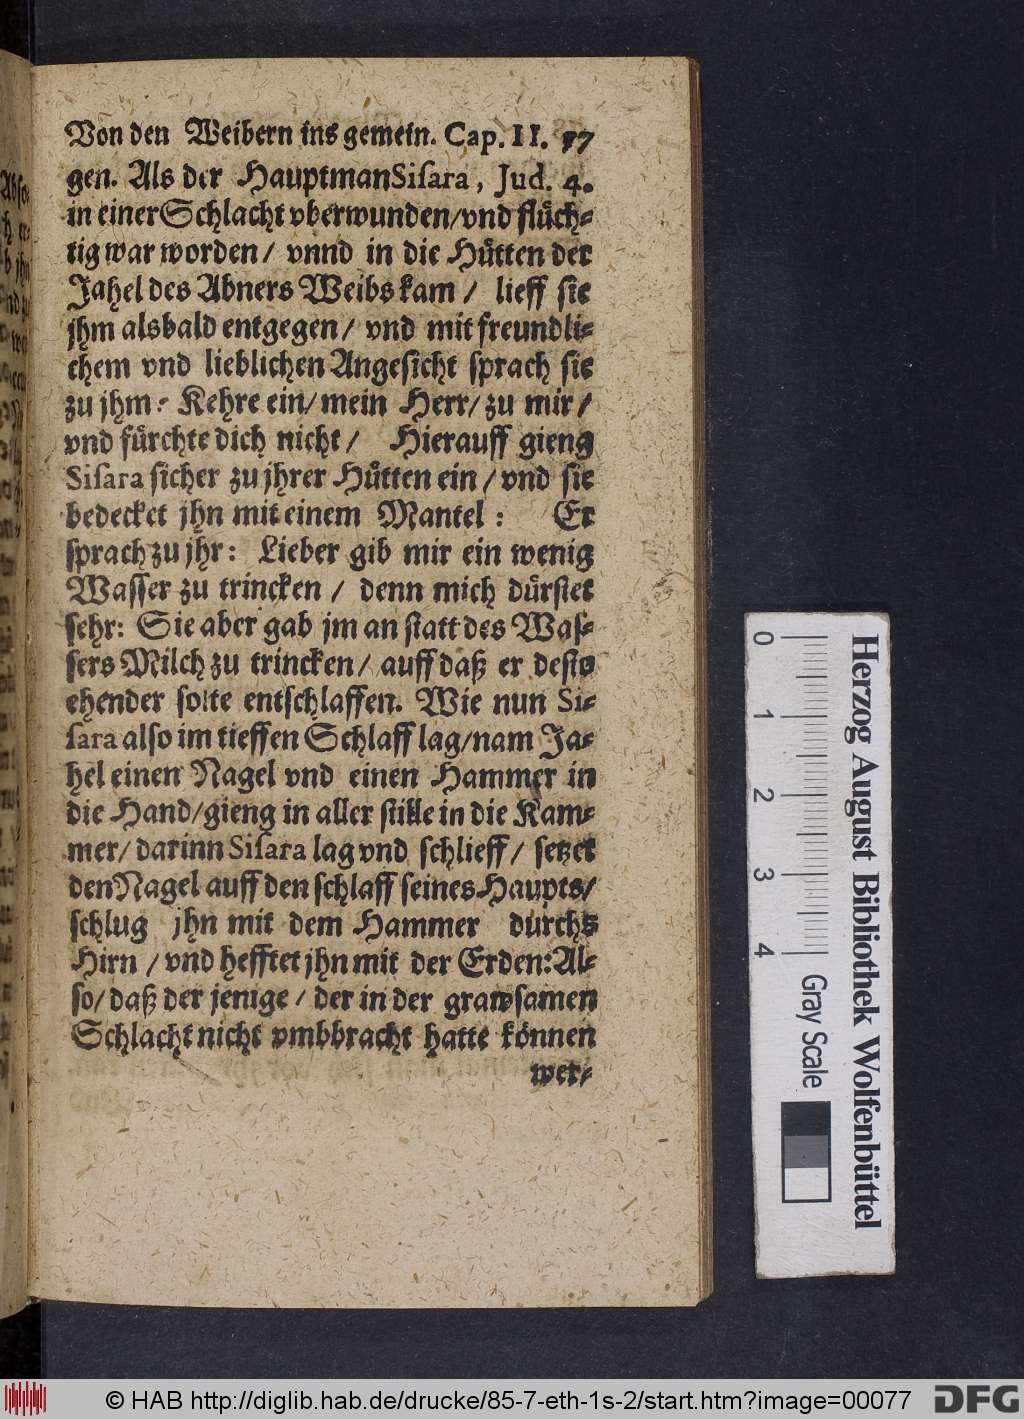 Von den Weibern ins gemein. Cap. II. 77
gen. Als der Hauptman Siſara, Jud. 4.
in einer Schlacht vberwunden/vnd fluͤch-
tig war worden/ vnnd in die Huͤtten der
Jahel des Abners Weibs kam/ lieff ſie
jhm alsbald entgegen/ vnd mit freundli-
chem vnd lieblichen Angeſicht ſprach ſie
zu jhm: Kehre ein/ mein Herr/ zu mir/
vnd fuͤrchte dich nicht/ Hierauff gieng
Siſara ſicher zu jhrer Huͤtten ein/ vnd ſie
bedecket jhn mit einem Mantel: Er
ſprach zu jhr: Lieber gib mir ein wenig
Waſſer zu trincken/ denn mich duͤrſtet
ſehr: Sie aber gab jm an ſtatt des Waſ-
ſers Milch zu trincken/ auff daß er deſto
ehender ſolte entſchlaffen. Wie nun Si-
ſara alſo im tieffen Schlaff lag/nam Ja-
hel einen Nagel vnd einen Hammer in
die Hand/gieng in aller ſtille in die Kam-
mer/ darinn Siſara lag vnd ſchlieff/ ſetzet
den Nagel auff den ſchlaff ſeines Haupts/
ſchlug jhn mit dem Hammer durchs
Hirn/ vnd hefftet jhn mit der Erden: Al-
ſo/ daß der jenige/ der in der grawſamen
Schlacht nicht vmbbracht hatte koͤnnen
wer-
0 1 2 3 4
Gray Scale
Herzog August Bibliothek Wolfenbüttel
© HAB http://diglib.hab.de/drucke/85-7-eth-1s-2/start.htm?image=00077
DFG